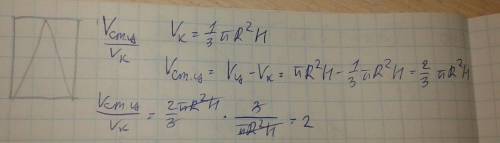 Vст.ц/Vк   Vк = 1/3 πR²H
Vст.ц = Vц - Vк = πR²H - 1/3 πR²H = 2/3 πR²H
Vст.ц/Vк = 2πR²H/3 · 3/πR²H = 2